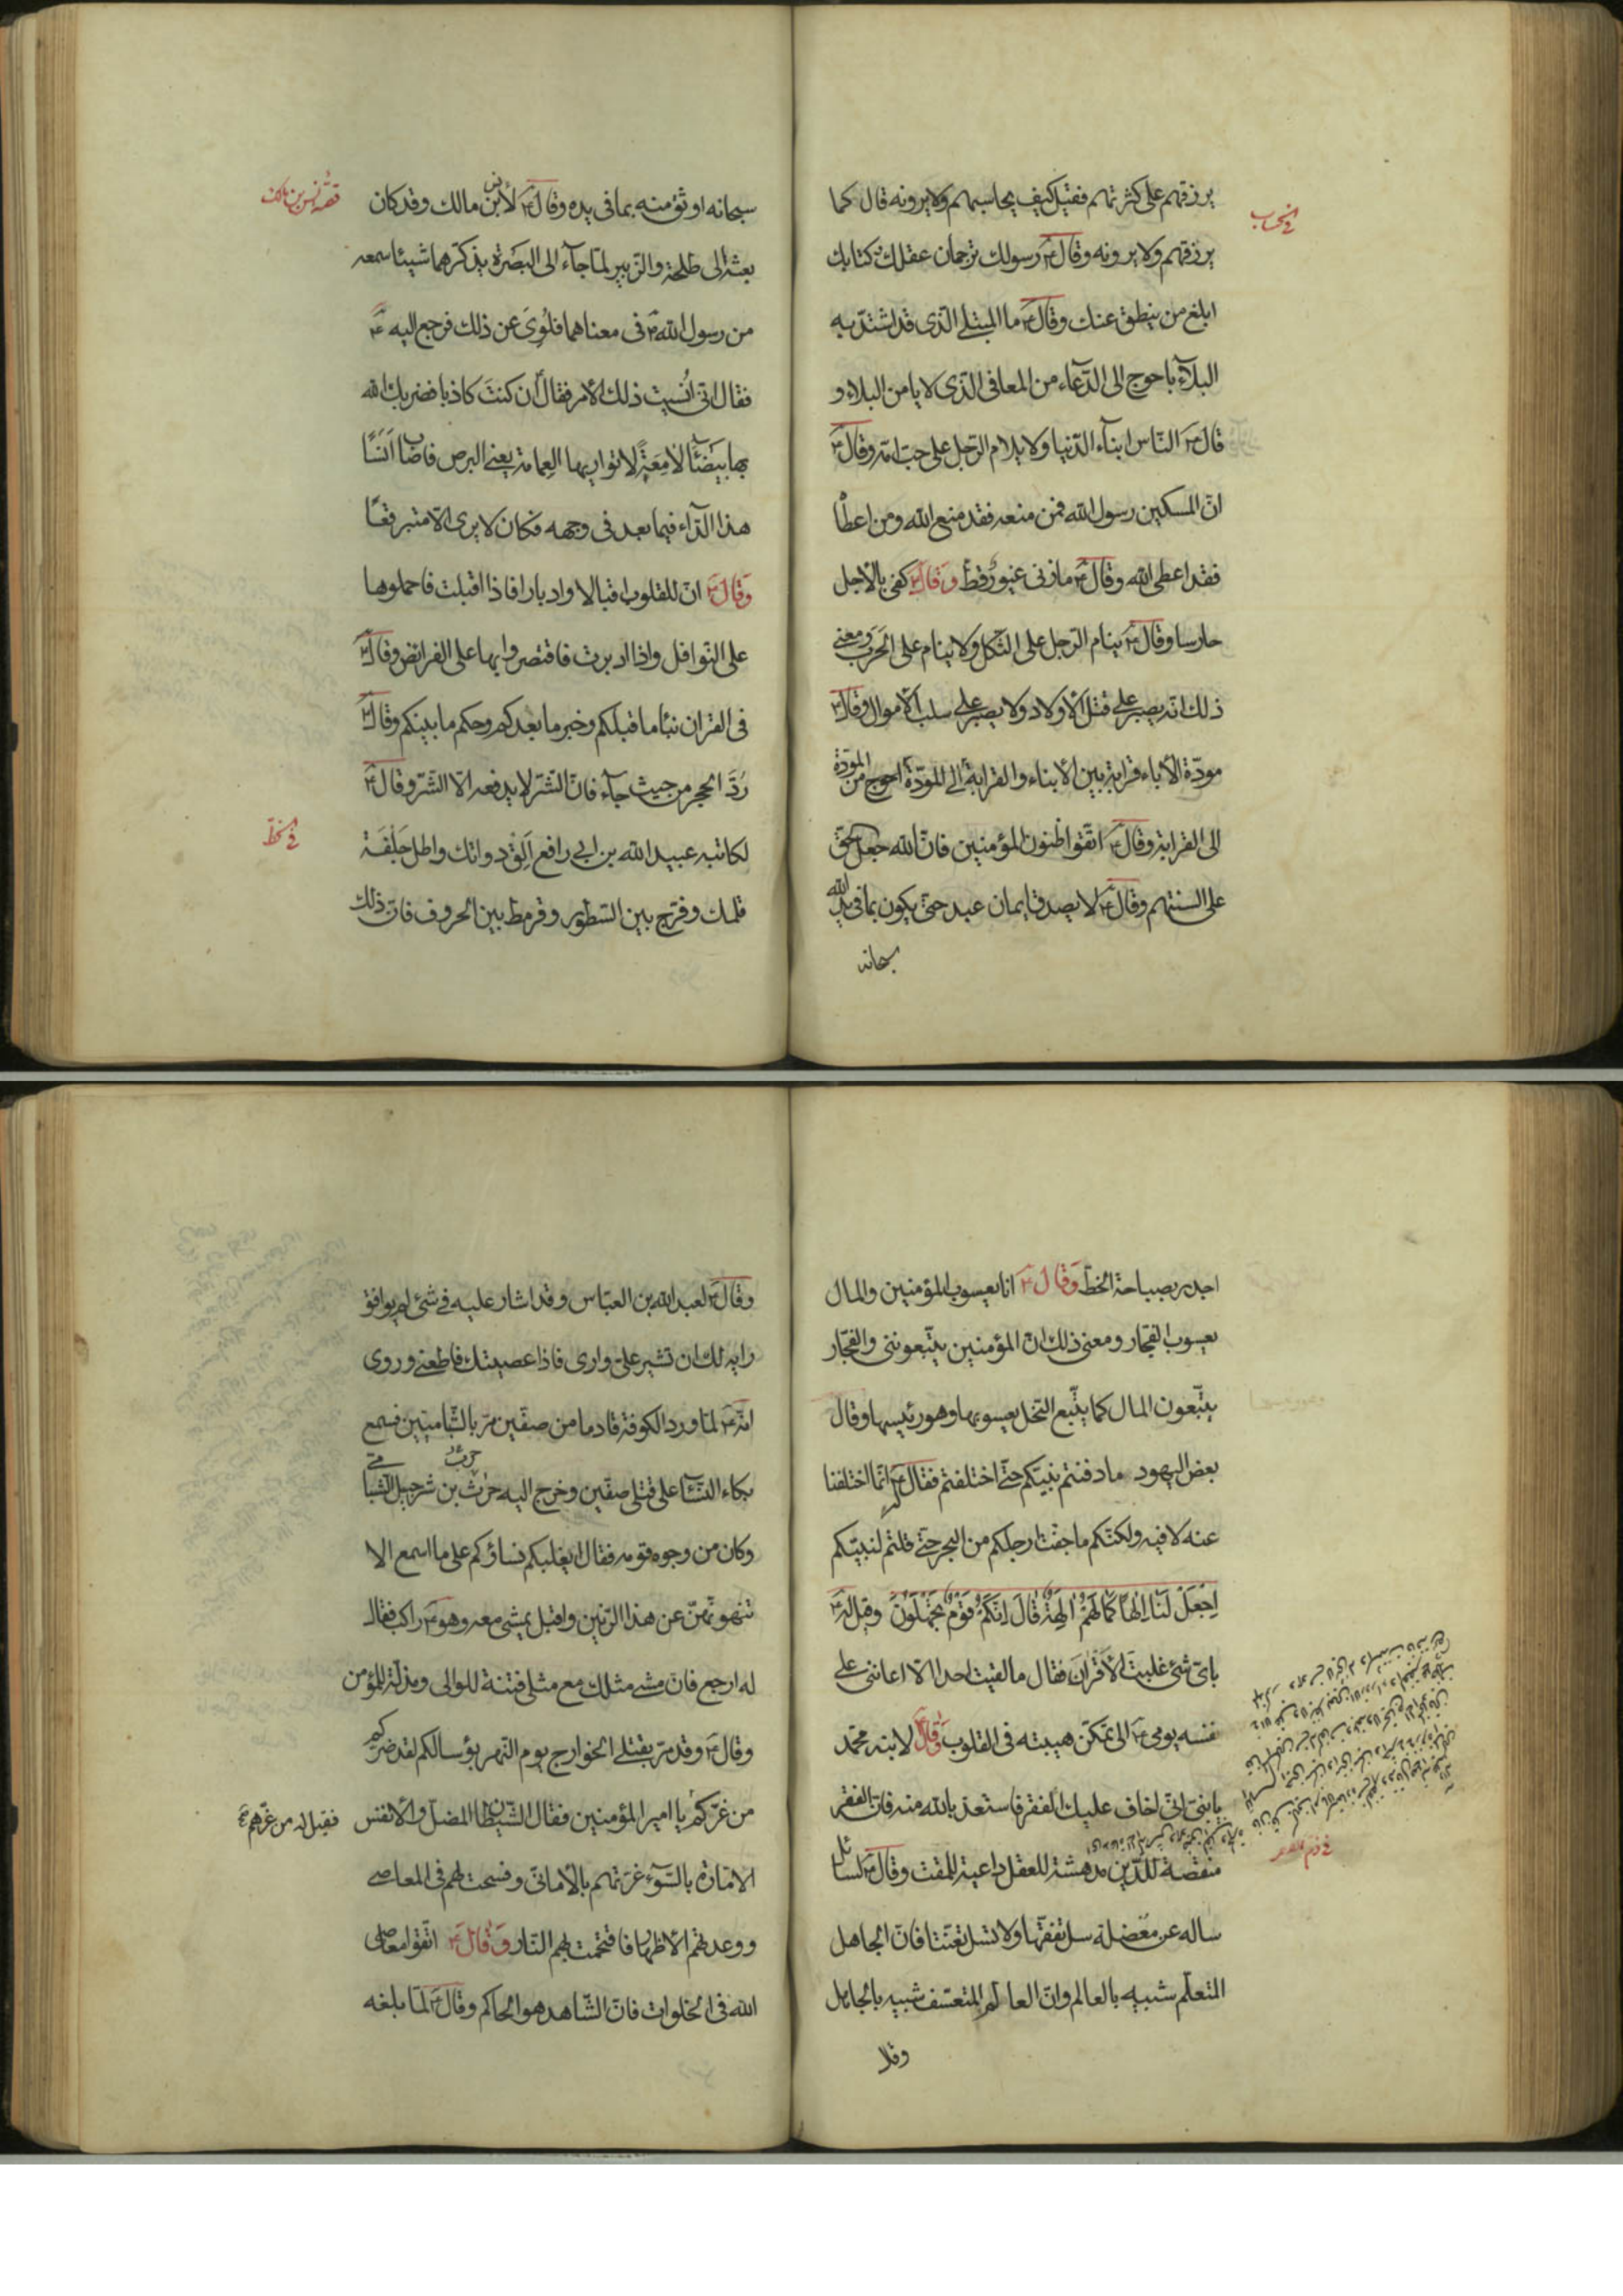 يرزقهم على كثرتهم فقيل كيف يحاسبهم ولا يرونه قال كما
في الحساب
يرزقهم ولا يرونه وقال ع رسولك ترجمان عقلك وكتابك
ابلغ من ينطق عنك وقال ع ما المبتلى الذى قد اشتد به
البلاء باحوج الى الدعاء من المعافى الذى لا يامن البلاء و
قال ع الناس ابناء الدنيا ولا يلام الرجل على حب امه وقال ع
ان المسكين رسول الله فمن منعه فقد منع الله ومن اعطاه
فقد اعطى الله وقال ع ما زنى غيور قط وقال ع كفى بالاجل
حارسا وقال ع ينام الرجل على الثكل ولا ينام على الحرب ومعنى
ذلك انه يصبر على قتل الاولاد ولا يصبر على سلب الاموال وقال ع
مودة الاباء قرابة بين الابناء والقرابة الى المودة احوج من المودة
الى القرابة وقال ع اتقوا ظنون المؤمنين فان الله جعل الحق
على السنتهم وقال ع لا يصدق ايمان عبد حتى يكون بما فى يد الله
سبحانه
سبحانه اوثق منه بما فى يده وقال ع لانس بن مالك وقد كان
قصة انس بن مالك
بعثه الى طلحة والزبير لما جاء الى البصرة يذكرهما شيئا سمعه
من رسول الله ص فى معناهما فلوى عن ذلك فرجع اليه ع
فقال انى انسيت ذلك الامر فقال ع ان كنت كاذبا فضربك الله
بها بيضاء لامعة لا تواريها العمامة يعنى البرص فاصاب انسا
هذا الداء فيما بعد فى وجهه فكان لا يرى الا متبرقعا
وقال ع ان للقلوب اقبالا وادبارا فاذا اقبلت فاحملوها
على النوافل واذا ادبرت فاقتصروا بها على الفرائض وقال ع
فى القران نبأ ما قبلكم وخبر ما بعدكم وحكم ما بينكم وقال ع
رد الحجر من حيث جاء فان الشر لا يدفعه الا الشر وقال ع
لكاتبه عبيد الله بن ابى رافع الق دواتك واطل جلفة
في الخط
قلمك وفرج بين السطور وقرمط بين الحروف فان ذلك
اجدر بصباحة الخط وقال ع انا يعسوب المؤمنين والمال
يعسوب الفجار ومعنى ذلك ان المؤمنين يتبعوننى والفجار
يتبعون المال كما يتبع النحل يعسوبها وهو رئيسها وقال
بعض اليهود ما دفنتم نبيكم حتى اختلفتم فقال ع له انما اختلفنا
عنه لا فيه ولكنكم ما جفت ارجلكم من البحر حتى قلتم لنبيكم
اجعل لنا الها كما لهم الهة قال انكم قوم تجهلون وقيل له ع
باى شئ غلبت الاقران فقال ما لقيت احدا الا اعاننى على
نفسه يومى ع الى تمكن هيبته فى القلوب وقال ع لابنه محمد
يا بنى انى اخاف عليك الفقر فاستعذ بالله منه فان الفقر
منقصة للدين مدهشة للعقل داعية للمقت وقال ع لسائل
ساله عن معضلة سل تفقها ولا تسل تعنتا فان الجاهل
المتعلم شبيه بالعالم وان العالم المتعسف شبيه بالجاهل
وقال
وقال ع لعبد الله بن العباس وقد اشار عليه فى شئ لم يوافق
رايه لك ان تشير على وارى فاذا عصيتك فاطعنى وروى
انه ع لما ورد الكوفة قادما من صفين مر بالشاميين فسمع
بكاء النساء على قتلى صفين وخرج اليه حرث بن شرحبيل الشبامى
حرب
وكان من وجوه قومه فقال ايغلبكم نساؤكم على ما اسمع الا
تنهونهن عن هذا الرنين واقبل يمشى معه وهو ع راكب فقال
له ارجع فان مشى مثلك مع مثلى فتنة للوالى ومذلة للمؤمن
وقال ع وقد مر بقتلى الخوارج يوم النهر بؤسا لكم لقد ضركم
من غركم فقيل له من غرهم يا امير المؤمنين فقال الشيطان المضل والانفس
الامارة بالسوء غرتهم بالامانى وفسحت لهم فى المعاصى
ووعدتهم الاظهار فاقتحمت بهم النار وقال ع اتقوا معاصى
الله فى الخلوات فان الشاهد هو الحاكم وقال ع لما بلغه